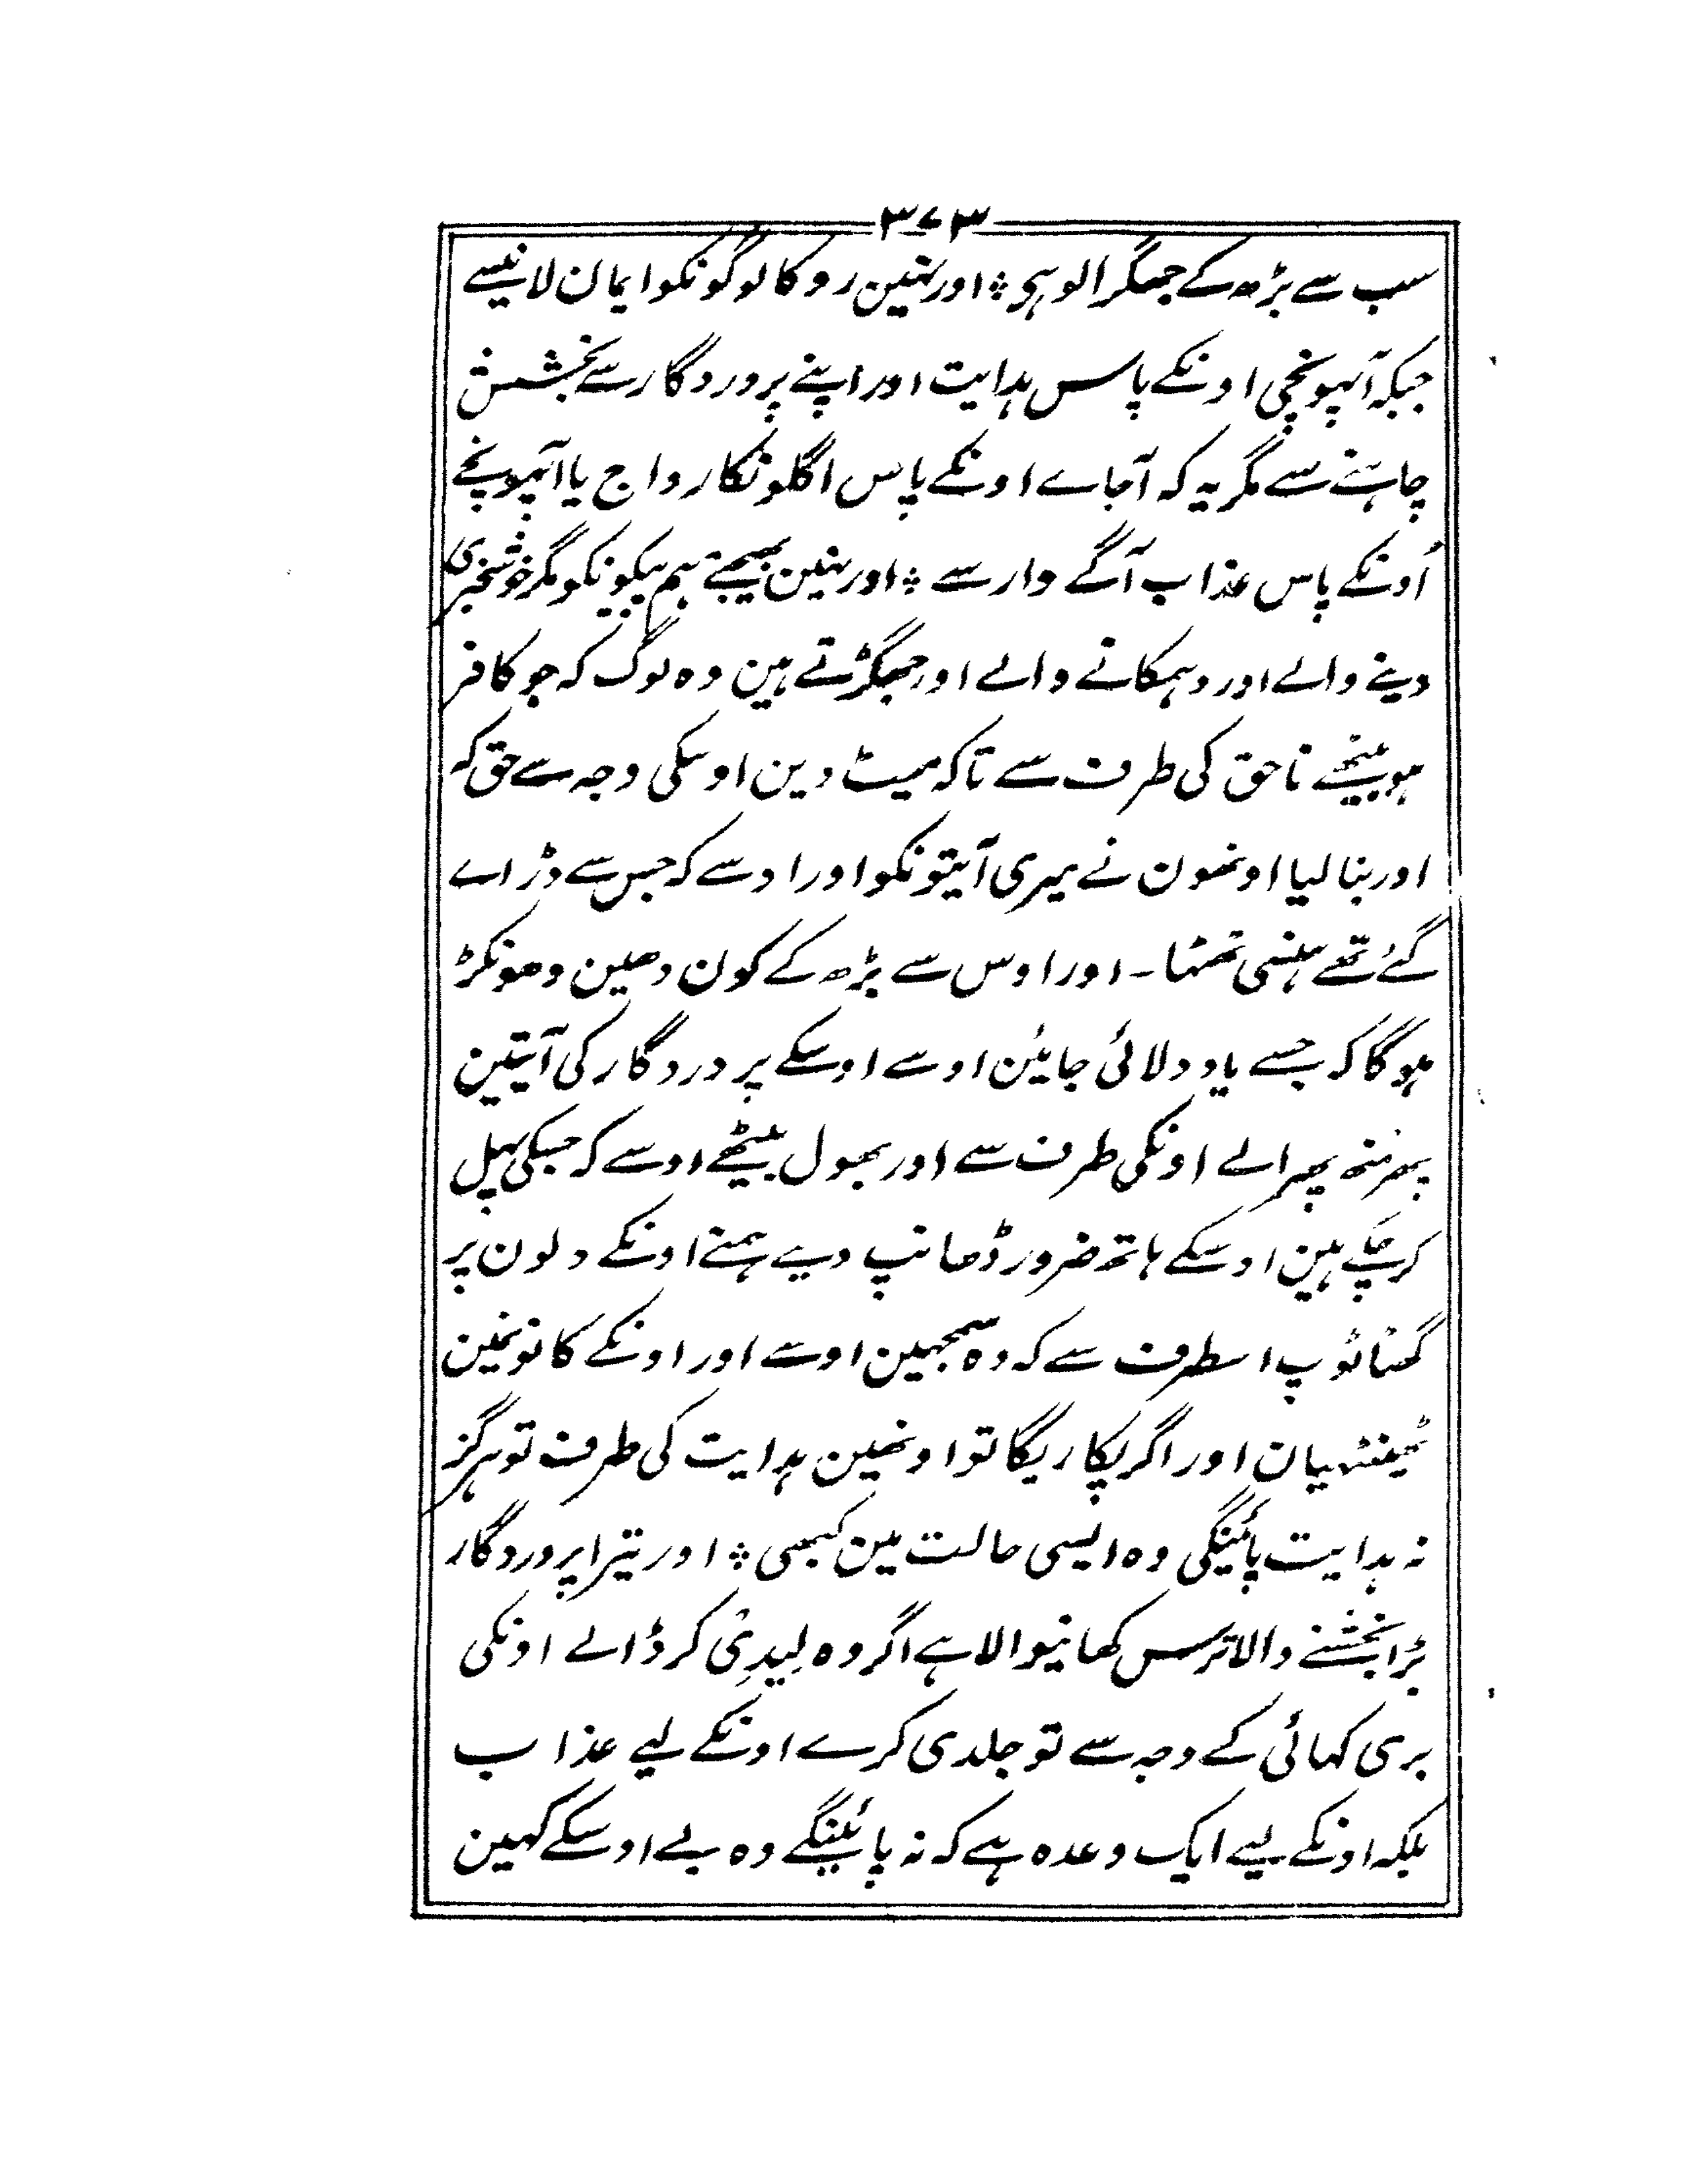 ۳۷۳
سب سے بڑھ کے جھگڑالو ہی ؞ اور نہین روکا لوگونکو ایمان لانیسے
جبکہ آپہونچی اونکے پاس ہدایت اور اپنے پروردگار سے بخشش
چاہنے سے مگر یہ کہ آجاے اونکے پاس اگلونکا رواج یا آپہونچے
اُونکے پاس عذاب آگے وار سے ؞ اور نہین بھیجتے ہم پیکونکو مگر خوشخبری
دینے والے اور دہمکانے والے اور جھگڑتے ہین وہ لوگ کہ جو کافر
ہو بیٹھے ناحق کی طرف سے تاکہ میٹ دین اوسکی وجہ سے حق کہ
اور بنا لیا اونھون نے میری آیتونکو اور اوسے کہ جس سے ڈراے
گئے تھے ہنسی ٹھٹھا ۔ اور اوس سے بڑھ کے کون دھین دھونکڑ
ہوگا کہ جسے یاد دلائی جائین اوسے اوسکے پروردگار کی آیتین
پھر منھ پھرالے اونکی طرف سے اور بھول بیٹھے اوسے کہ جسکی پہل
کرچکے ہین اوسکے ہاتھ ضرور ڈھانپ دیے ہمنے اونکے دلون پر
گھٹاٹوپ اسطرف سے کہ وہ سمجھین اوسے اور اونکے کانونمین
ٹھینٹھیان اور اگر پکاریگا تو اونھین ہدایت کی طرف تو ہرگز
نہ ہدایت پائینگی وہ ایسی حالت مین کبھی ؞ اور تیرا پروردگار
بڑا بخشنے والا ترس کھانیوالا ہے اگر وہ لیدیْ کر ڈالے اونکی
بری کہائی کے وجہ سے تو جلدی کرے اونکے لیے عذاب
بلکہ اونکے لیے ایک وعدہ ہے کہ نہ پائینگے وہ بے اوسکے کہین